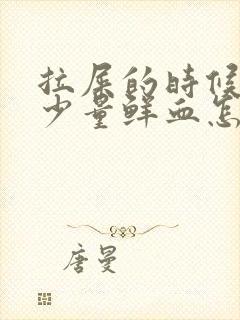 拉屎的时候
少量鲜血怎
唐曼